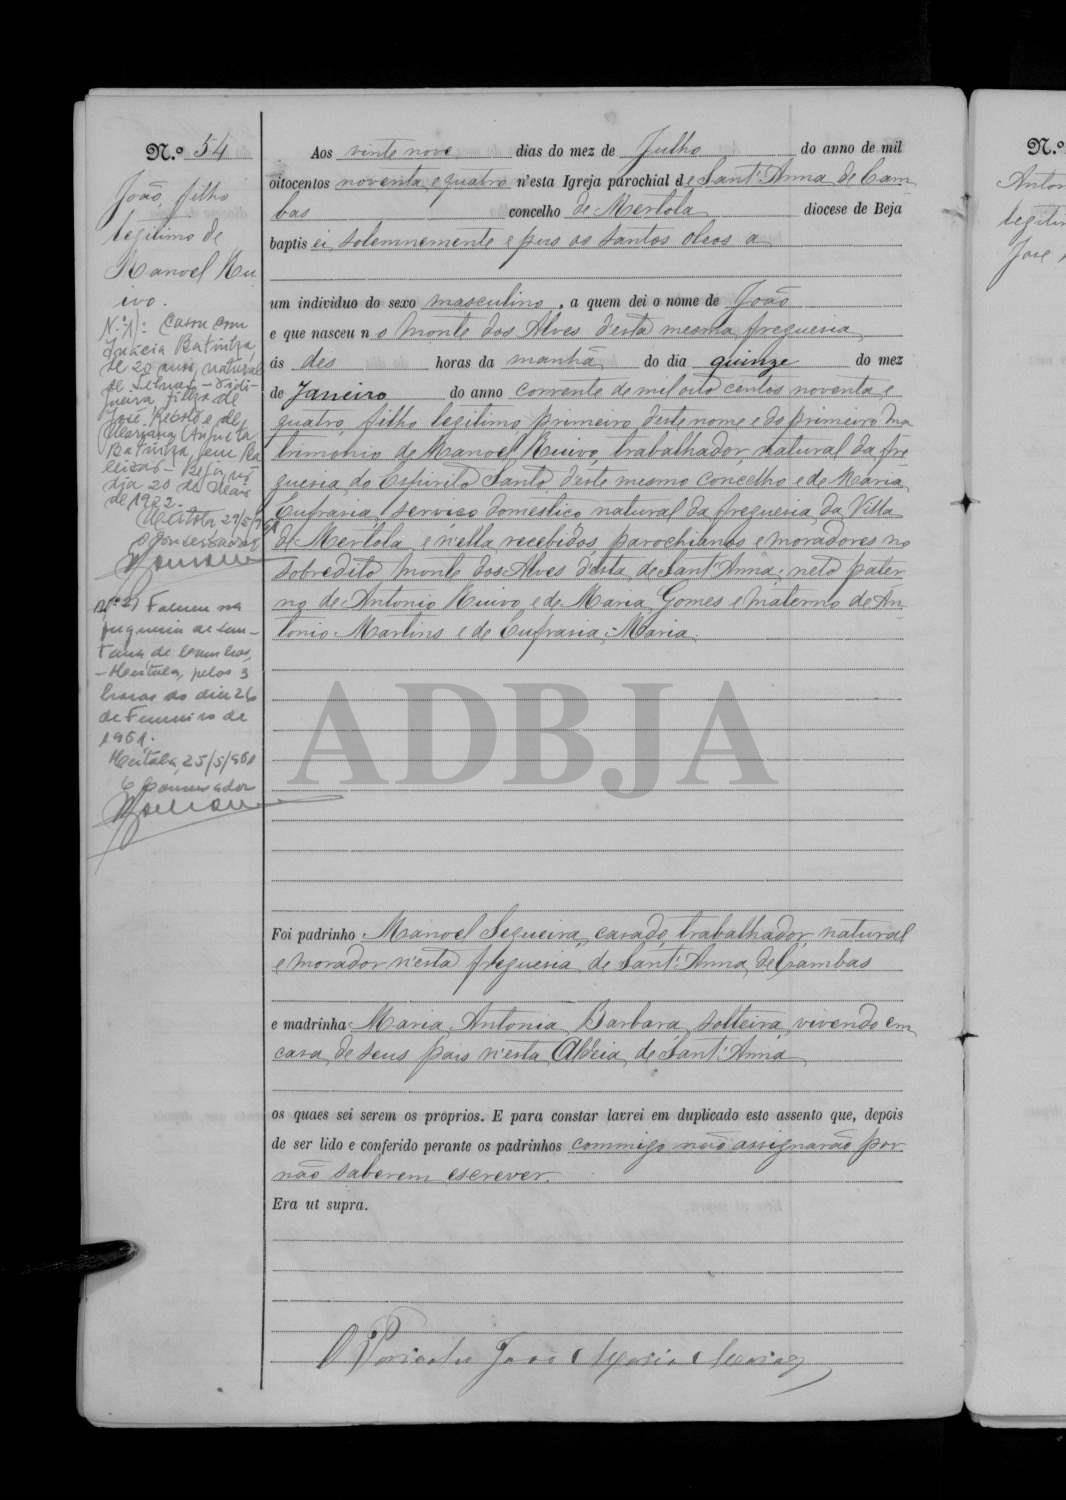 N.º 54
João, filho
legitimo de
Manoel Rui
ivo.
N.º 1): Casou com
Inácia Batista,
de 20 anos, natural
de Selmes - Vidi-
gueira, filha de
José e de
Mariana Augusta
Batista, em Ba
leizão - Beja, no
dia 20 de Maio
de 1922.
Mértola 29/5/
O Conservador
N.º 2) Faleceu na
freguesia de San-
tana de Cambas,
- Mértola, pelas 3
horas do dia 26
de Fevereiro de
1961.
Mértola, 25/5/961
O Conservador
Aos vinte nove dias do mez de Julho do anno de mil
oitocentos noventa e quatro n'esta Igreja parochial de Sant'Anna de Cam
bas concelho de Mertola diocese de Beja
baptisei solemnemente e pus os santos oleos a
um individuo do sexo masculino, a quem dei o nome de João
e que nasceu no Monte dos Alves d'esta mesma freguesia
ás des horas da manhã do dia quinze do mez
de Janeiro do anno corrente de mil oito centos noventa e
quatro, filho legitimo primeiro d'este nome e do primeiro ma
trimonio de Manoel Ruivo, trabalhador, natural da fre
guesia do Espirito Santo, d'este mesmo concelho e de Maria
Eufrasia, serviço domestico, natural da freguesia da Villa
de Mertola, e n'ella recebidos, parochianos e moradores no
sobredito Monte dos Alves d'esta de Sant'Anna; neto pater
no de Antonio Ruivo, e de Maria Gomes e materno de An-
tonio Martins e de Eufrasia Maria.
ADBJA
Foi padrinho Manoel Sequeira, casado, trabalhador natural
e morador n'esta freguesia de Sant'Anna de Cambas
e madrinha Maria Antonia Barbara, solteira, vivendo em
casa de seus pais n'esta Aldeia de Sant'Anna
os quaes sei serem os proprios. E para constar lavrei em duplicado este assento que, depois
de ser lido e conferido perante os padrinhos commigo não assignarão por
não saberem escrever.
Era ut supra.
O Parocho João Maria
N.º
Anton
legiti
José